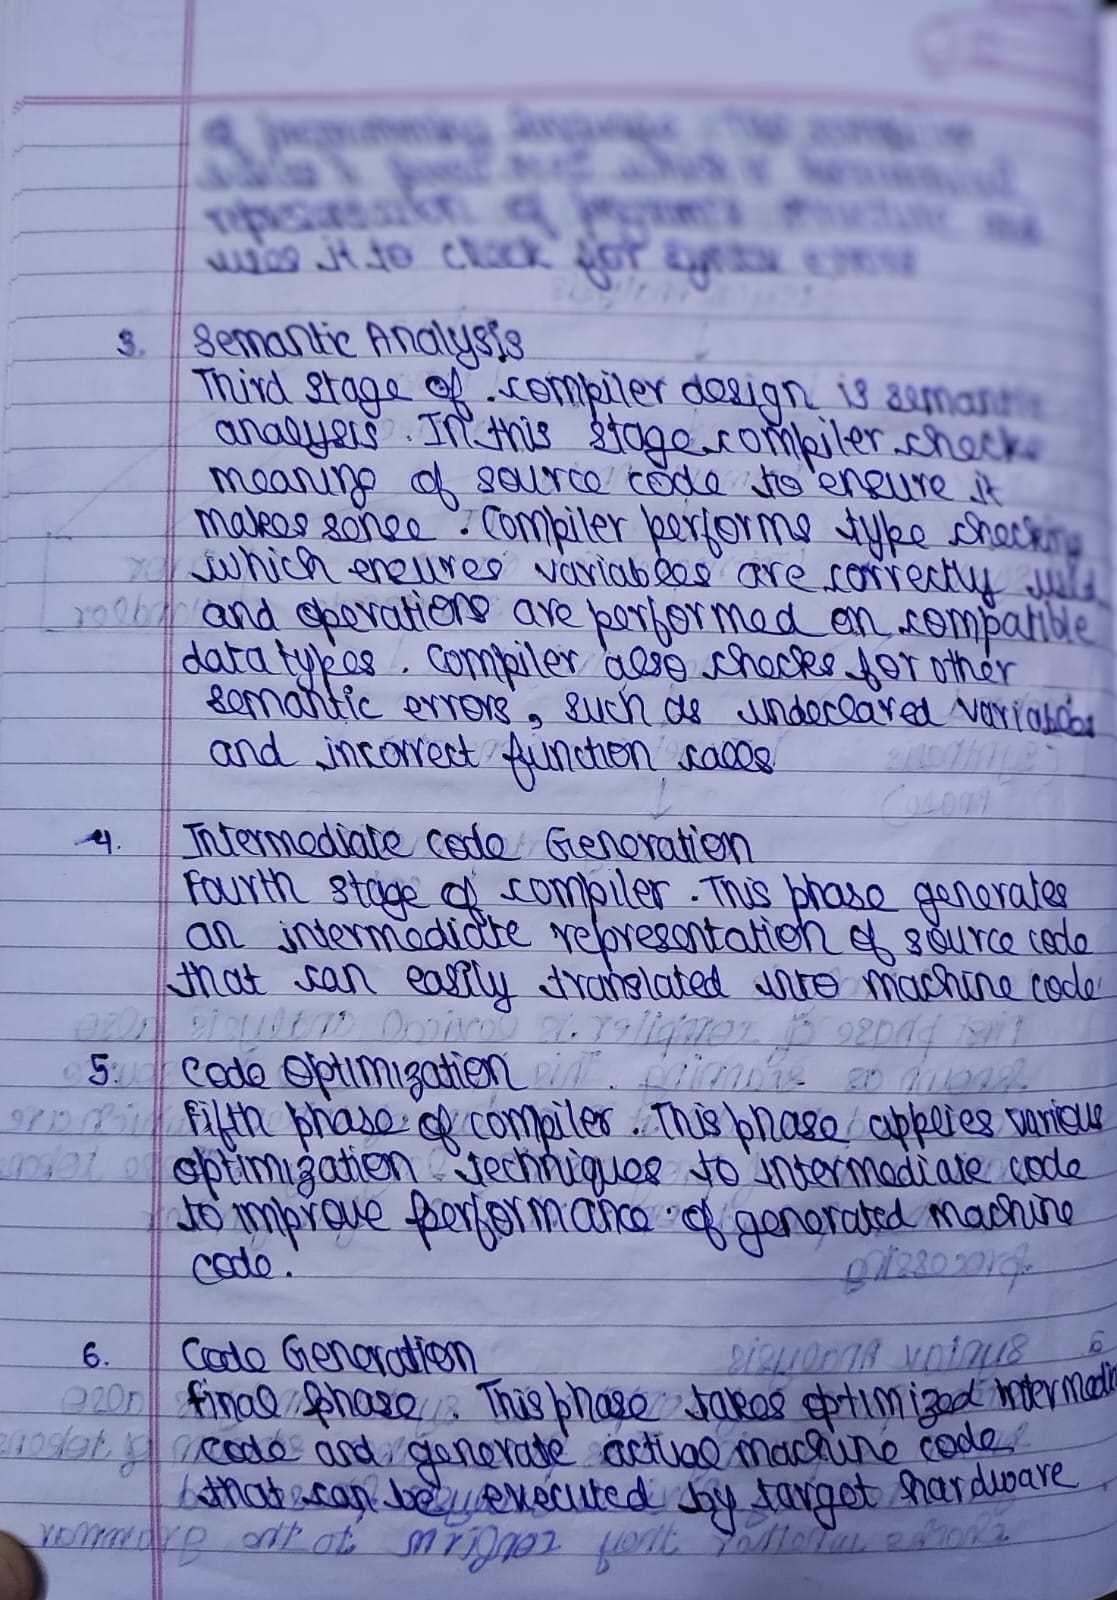 of programming language. The compiler
which is hierarchical
representation of program's structure and
uses it to check for syntax errors
3. Semantic Analysis
Third stage of compiler design is semantic
analysis. In this stage compiler checks
meaning of source code to ensure it
makes sense. Compiler performs type checking
which ensures variables are correctly used
and operations are performed on compatible
data types. Compiler also checks for other
semantic errors, such as undeclared variables
and incorrect function calls
4. Intermediate Code Generation
Fourth stage of compiler. This phase generates
an intermediate representation of source code
that can easily translated into machine code
5. Code Optimization
Fifth phase of compiler. This phase applies various
optimization techniques to intermediate code
to improve performance of generated machine
code.
6. Code Generation
Final phase. This phase takes optimized intermedi
code and generate actual machine code
that can be executed by target hardware